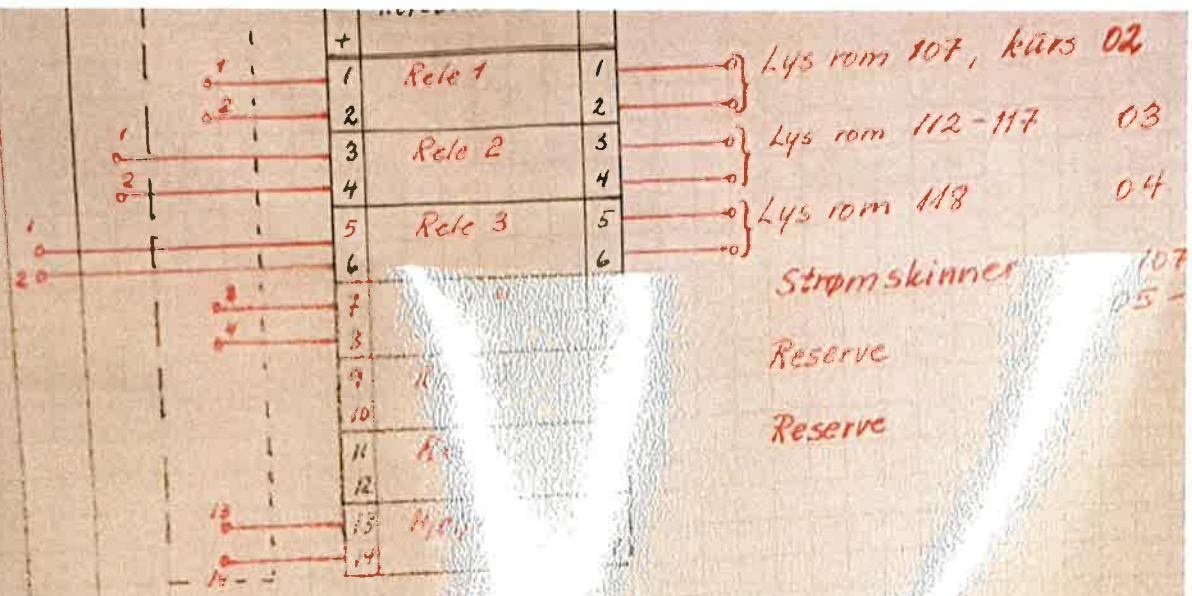 +
1 1 Rele 1 1 Lys rom 107, kurs 02
2 2 2
1 3 Rele 2 3 Lys rom 112-117 03
2 4 4
1 5 Rele 3 5 Lys rom 118 04
2 6 6
7 Strømskinner 107
4 05 -
9 Reserve
10
11 Reserve
12
13 13
14